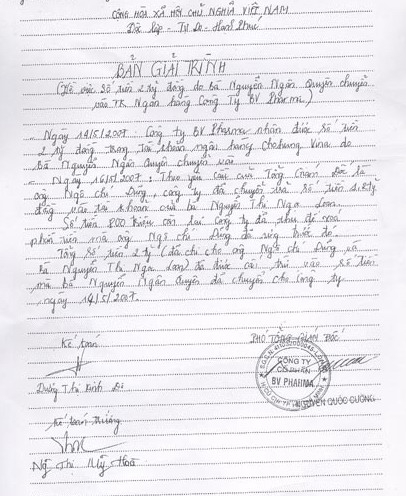 CỘNG HÒA XÃ HỘI CHỦ NGHĨA VIỆT NAM
Độc lập - Tự Do - Hạnh Phúc
BẢN GIẢI TRÌNH
(Về việc số tiền 2 tỷ đồng do bà Nguyễn Ngân Quyên chuyển
vào TK Ngân hàng Công Ty BV Pharma.)
- Ngày 14/5/2007: Công ty BV Pharma nhận được số tiền
2 tỷ đồng trong Tài khoản ngân hàng Chohung Vina do
Bà Nguyễn Ngân Quyên chuyển vào
- Ngày 16/5/2007: Theo yêu cầu của Tổng Giám Đốc là
ông Ngô chí Dũng, công ty đã chuyển trả số tiền 1.8 tỷ
đồng vào tài khoản của bà Nguyễn Thị Nga Loan.
Số tiền 200 triệu còn lại Công ty đã thu
phần tiền mà ông Ngô chí Dũng đã ứng trước đó.
Tổng số tiền 2 tỷ (đã chi cho ông Ngô chí Dũng và
Bà Nguyễn Thị Nga Loan) đã được cấn trừ vào số tiền
mà bà Nguyễn Ngân Quyên đã chuyển cho Công ty
ngày 14/5/2007.
Kế toán
PHÓ TỔNG GIÁM ĐỐC
CÔNG TY
CỔ PHẦN
BV PHARMA
Dương Thị Kinh
NGUYỄN QUỐC CƯỜNG
Kế toán trưởng
Ng Thị Mỹ Hoà